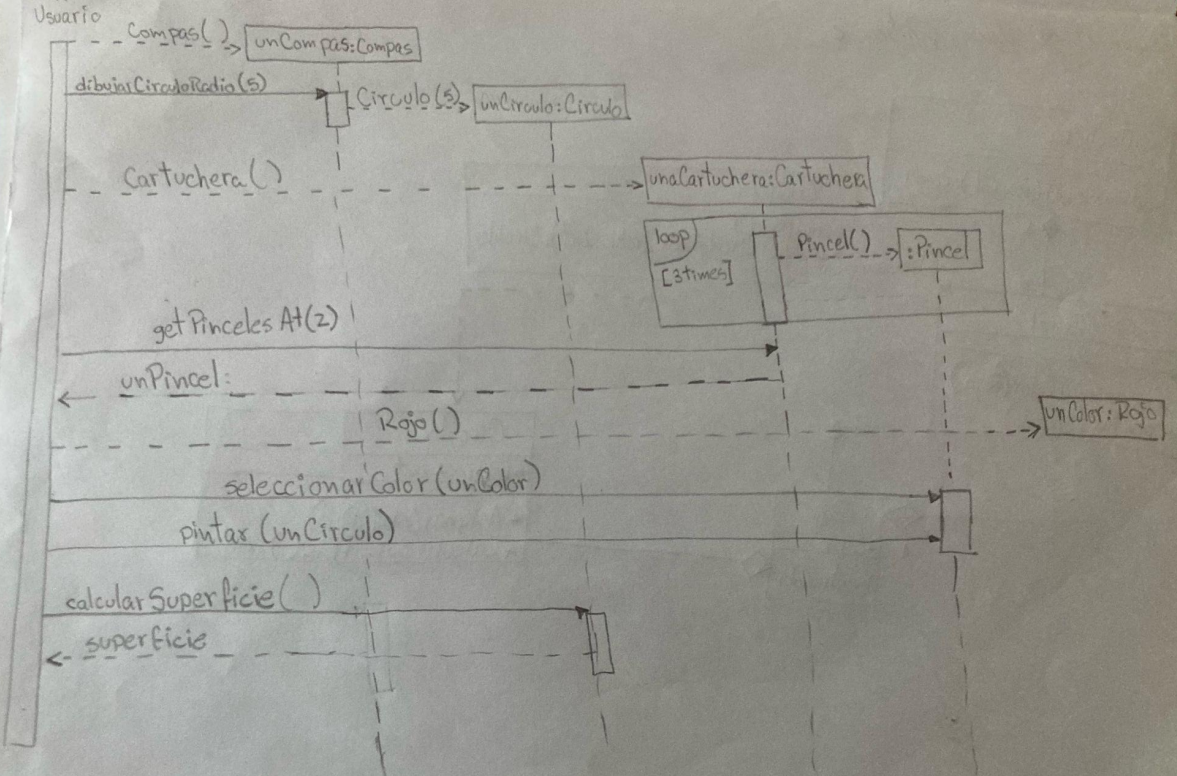 Usuario
Compas()
unCompas:Compas
dibujarCirculoRadio(5)
Circulo(5)
unCirculo:Circulo
Cartuchera()
unaCartuchera:Cartuchera
loop
Pincel()
:Pincel
[3times]
getPincelesAt(2)
unPincel:
Rojo()
unColor:Rojo
seleccionarColor(unColor)
pintar(unCirculo)
calcularSuperficie()
superficie